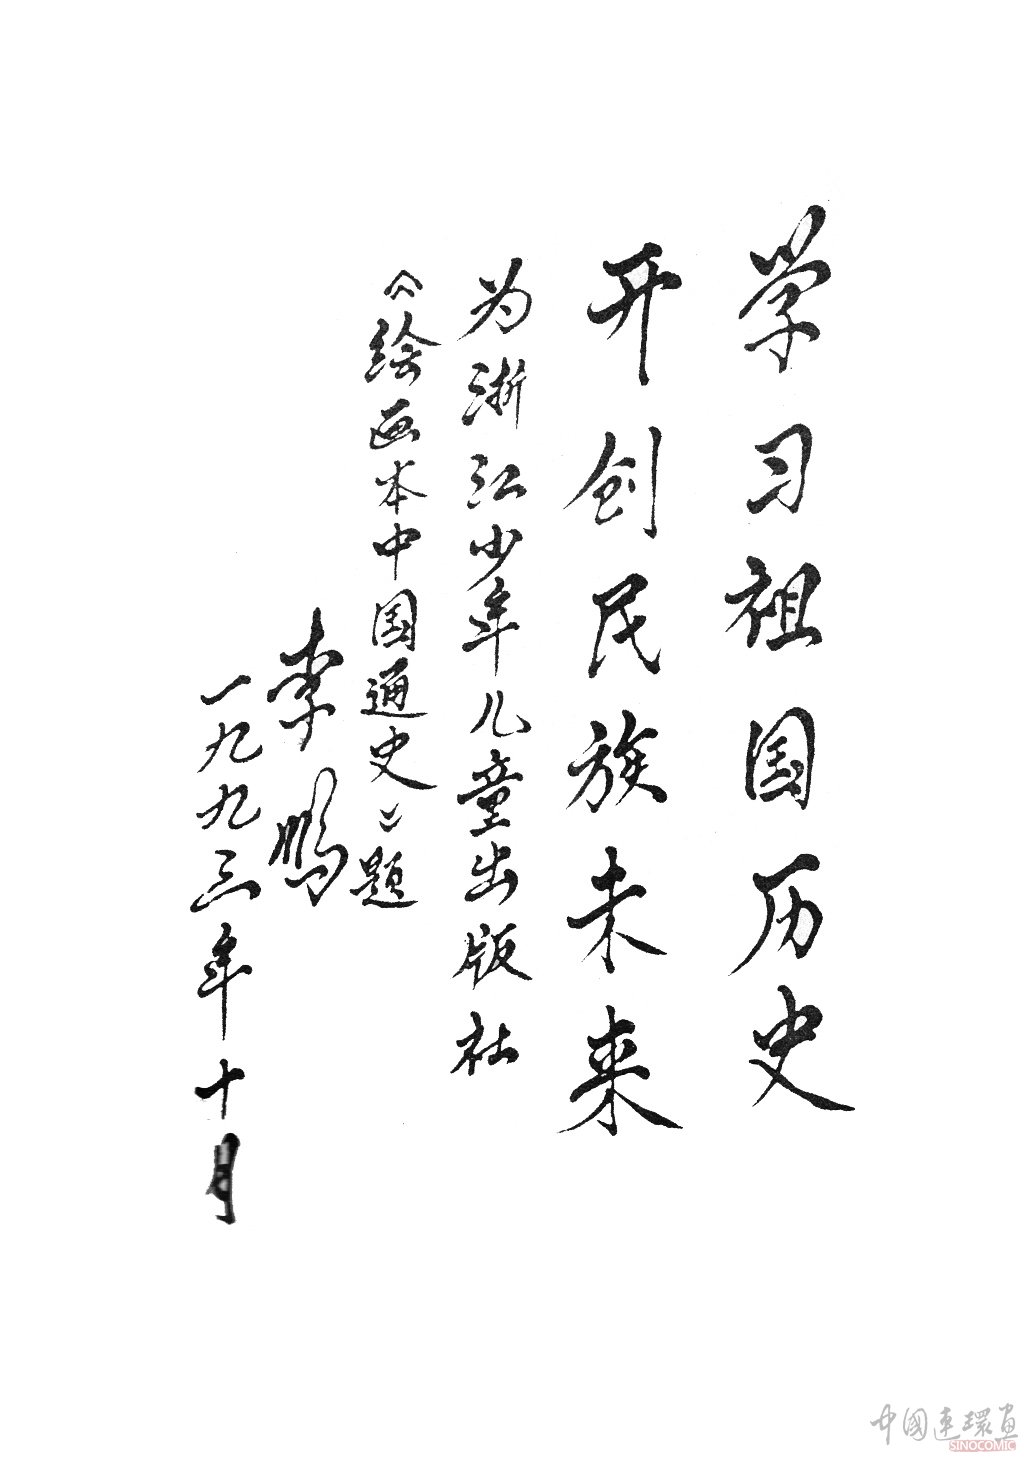 学习祖国历史
开创民族未来
为浙江少年儿童出版社
《绘画本中国通史》题
李鹏
一九九三年十月
中國連環畫
SINOCOMIC